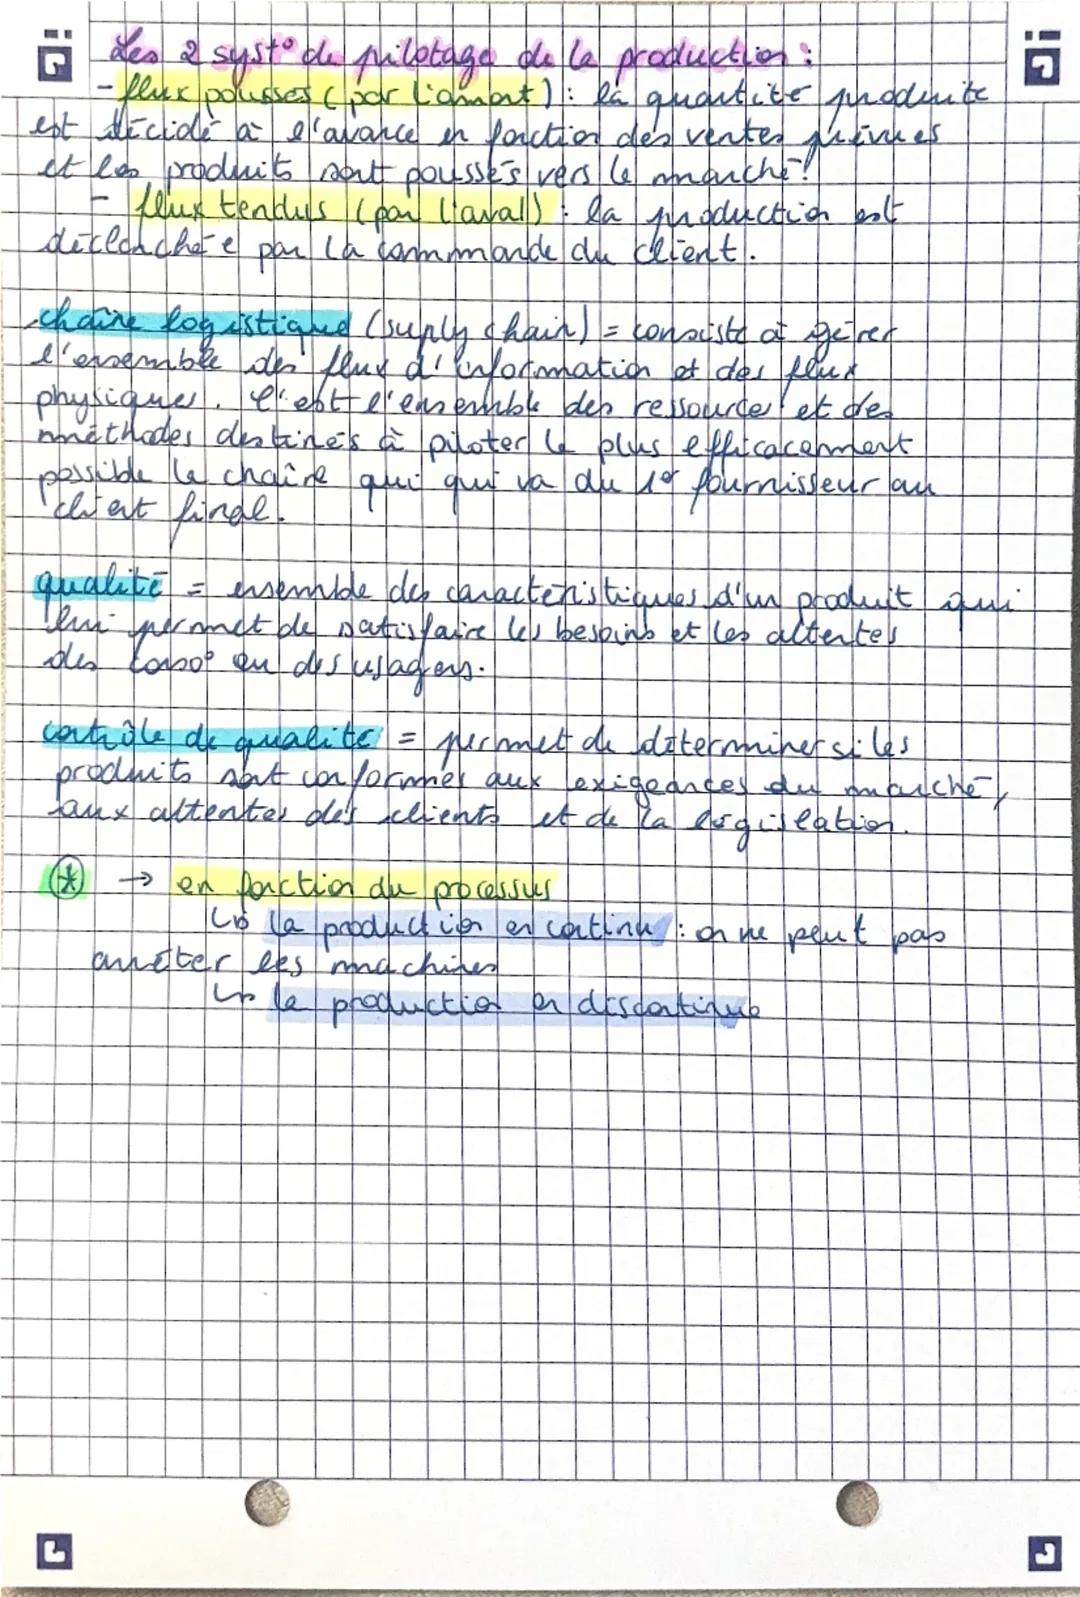 Les 2 syst° de pilotage de la production :
- flux poussés (par l'amont) : la quantité produite
est décidé à l'avance en fonction des ventes prévues
et les produits sont poussés vers le marché.
- flux tenduls (par l'aval) : la production est
déclenchée par la commande du client.
chaîne logistique (suply chain) = consiste à gérer
l'ensemble des flux d'information et des flux
physiques. C'est l'ensemble des ressources et des
méthodes destinés à piloter le plus efficacement
possible la chaîne qui qui va du 1er fournisseur au
client final.
qualité = ensemble des caractéristiques d'un produit qui
lui permet de satisfaire les besoins et les attentes
des conso° ou des usagers.
contrôle de qualité = permet de déterminer si les
produits sont conformes aux exigeances du marché,
aux attentes des clients et de la législation.
* → en fonction du processus
↳ la production en continu : on ne peut pas
arrêter les machines
↳ la production en discontinue